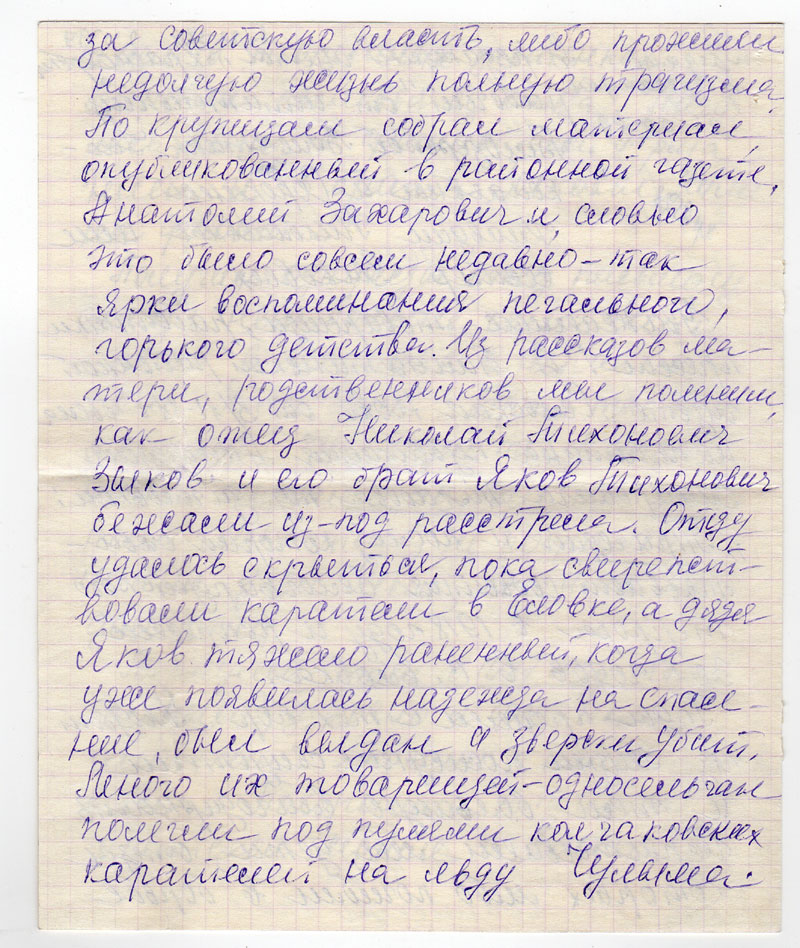 за советскую власть, либо прожили
недолгую жизнь полную трагизма.
По крупицам собрал материал,
опубликованный в районной газете,
Анатолий Захарович и, словно
это было совсем недавно – так
ярки воспоминания печального,
горького детства. Из рассказов ма-
тери, родственников мы помним,
как отец Николай Тихонович
Зыков и его брат Яков Тихонович
бежали из-под расстрела. Отцу
удалось скрыться, пока свирепст-
вовали каратели в Еловке, а дядя
Яков тяжело раненный, когда
уже появилась надежда на спасе-
ние, был выдан и зверски убит.
Много их товарищей-односельчан
полегли под пулями колчаковских
карателей на льду Чулыма.